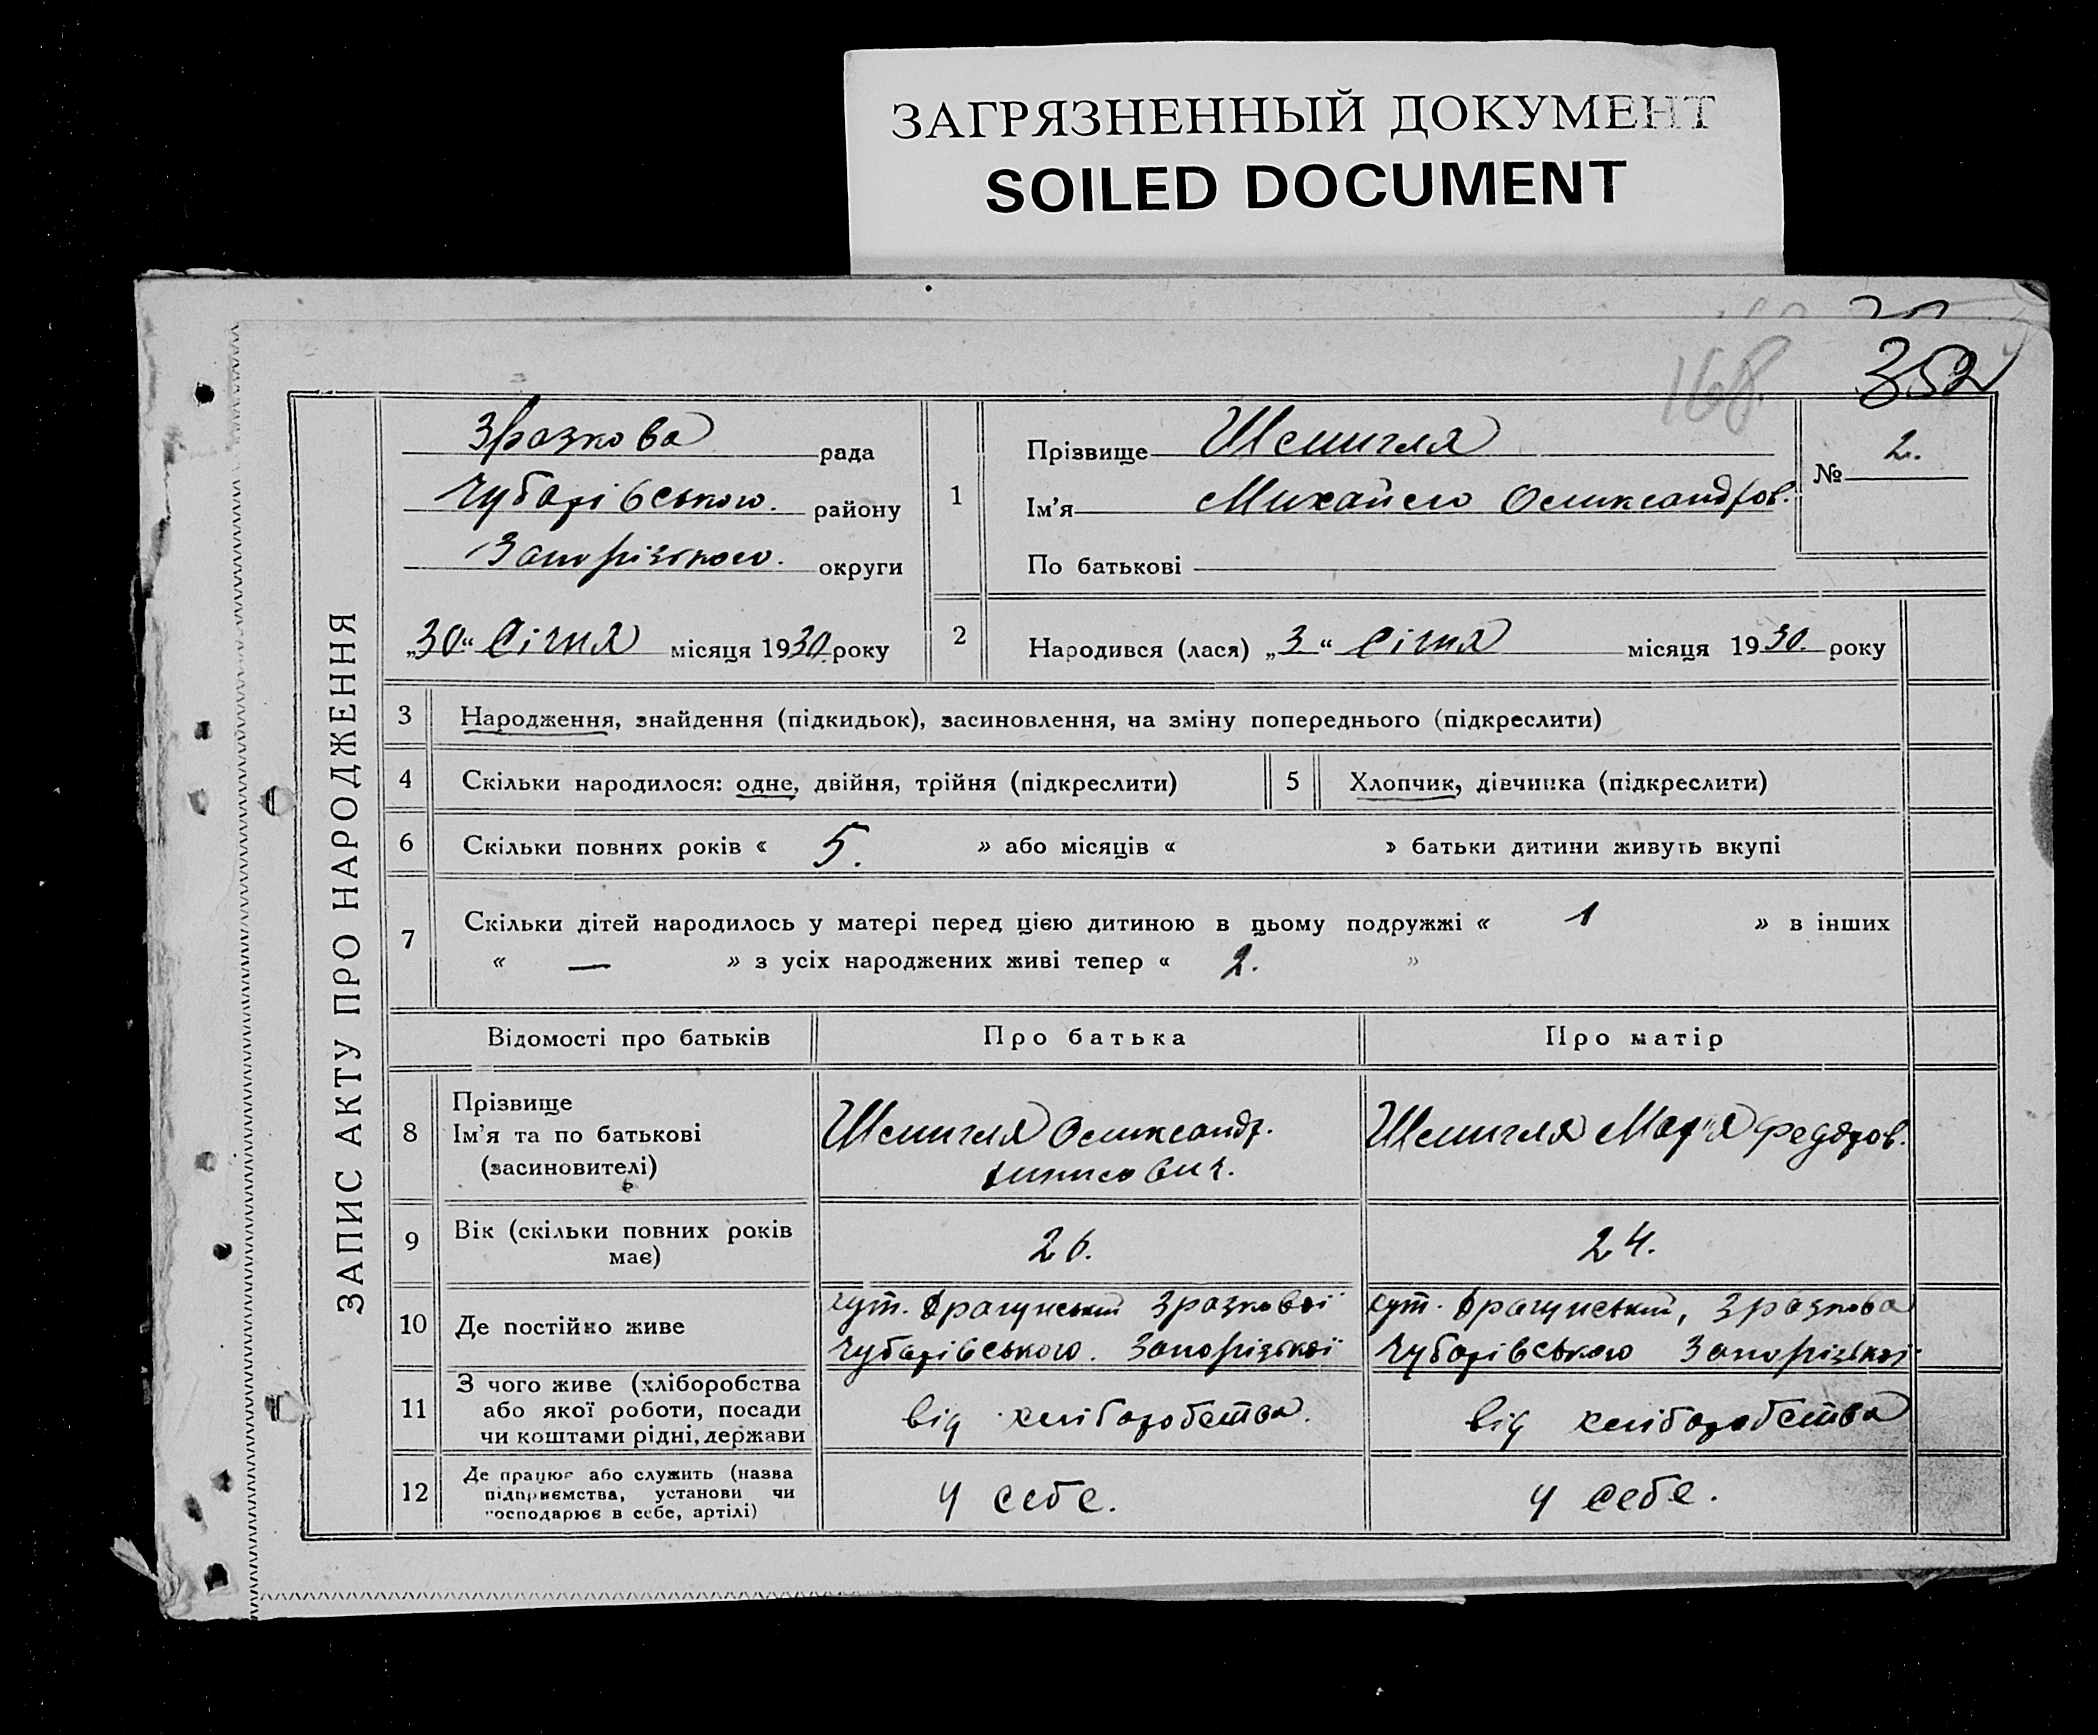 ЗАГРЯЗНЕННЫЙ ДОКУМЕНТ
SOILED DOCUMENT
168.
352
ЗАПИС АКТУ ПРО НАРОДЖЕННЯ
Зразкова рада
Чубарівського. району
Запорізького. округи
„30“ Січня місяця 1930. року
1
Прізвище Шемигля
Ім'я Михайло Олександров.
По батькові
№ 2.
2
Народився (лася) „3“ Січня місяця 1930. року
3 Народження, знайдення (підкидьок), засиновлення, на зміну попереднього (підкреслити)
4 Скільки народилося: одне, двійня, трійня (підкреслити) 5 Хлопчик, дівчинка (підкреслити)
6 Скільки повних років « 5. » або місяців « » батьки дитини живуть вкупі
7 Скільки дітей народилось у матері перед цією дитиною в цьому подружжі « 1 » в інших
« — » з усіх народжених живі тепер « 2. »
Відомості про батьків Про батька Про матір
8 Прізвище
Ім'я та по батькові
(засиновителі)
Шемигля Олександр.
Шемигля Мар'я Федоров.
9 Вік (скільки повних років
має)
26. 24.
10 Де постійно живе
хут. Драгунський Зразкової
Чубарівського. Запорізької
хут. Драгунський, Зразкова
Чубарівського Запорізької
11 З чого живе (хліборобства
або якої роботи, посади
чи коштами рідні, держави
від хліборобства. від хліборобства
12 Де працює або служить (назва
підприємства, установи чи
господарює в себе, артілі)
у себе. у себе.